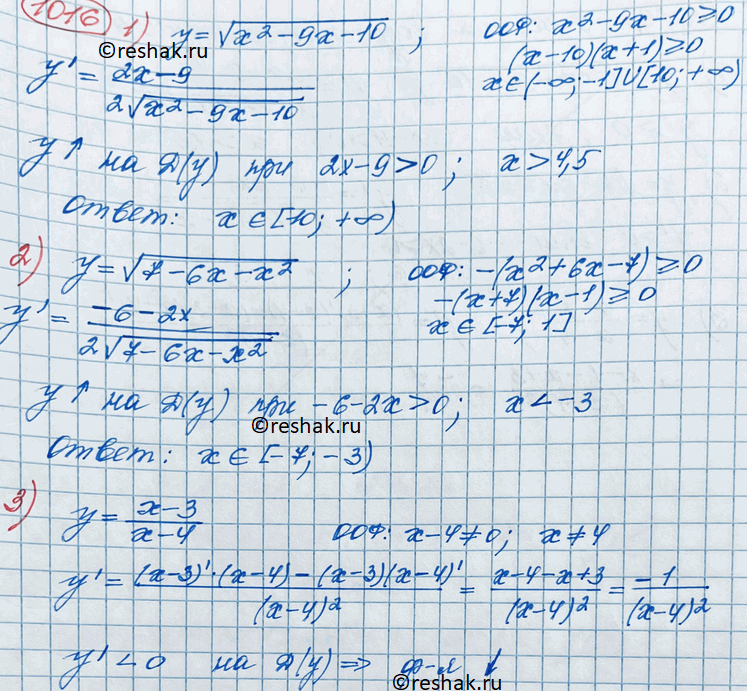 1016 1) y = √(x² - 9x - 10) ; ООФ: x² - 9x - 10 ≥ 0
© reshak.ru
(x - 10)(x + 1) ≥ 0
y' = (2x - 9) / (2√(x² - 9x - 10)) x ∈ (-∞; -1] ∪ [10; +∞)
y ↑ на D(y) при 2x - 9 > 0 ; x > 4,5
Ответ: x ∈ [10; +∞)
2) y = √(7 - 6x - x²) ; ООФ: -(x² + 6x - 7) ≥ 0
-(x + 7)(x - 1) ≥ 0
y' = (-6 - 2x) / (2√(7 - 6x - x²)) x ∈ [-7; 1]
y ↑ на D(y) при -6 - 2x > 0 ; x < -3
© reshak.ru
Ответ: x ∈ [-7; -3)
3) y = (x - 3) / (x - 4) ООФ: x - 4 ≠ 0 ; x ≠ 4
y' = ((x - 3)' · (x - 4) - (x - 3)(x - 4)') / (x - 4)² = (x - 4 - x + 3) / (x - 4)² = -1 / (x - 4)²
y' < 0 на D(y) ⇒ ф-я ↓
© reshak.ru